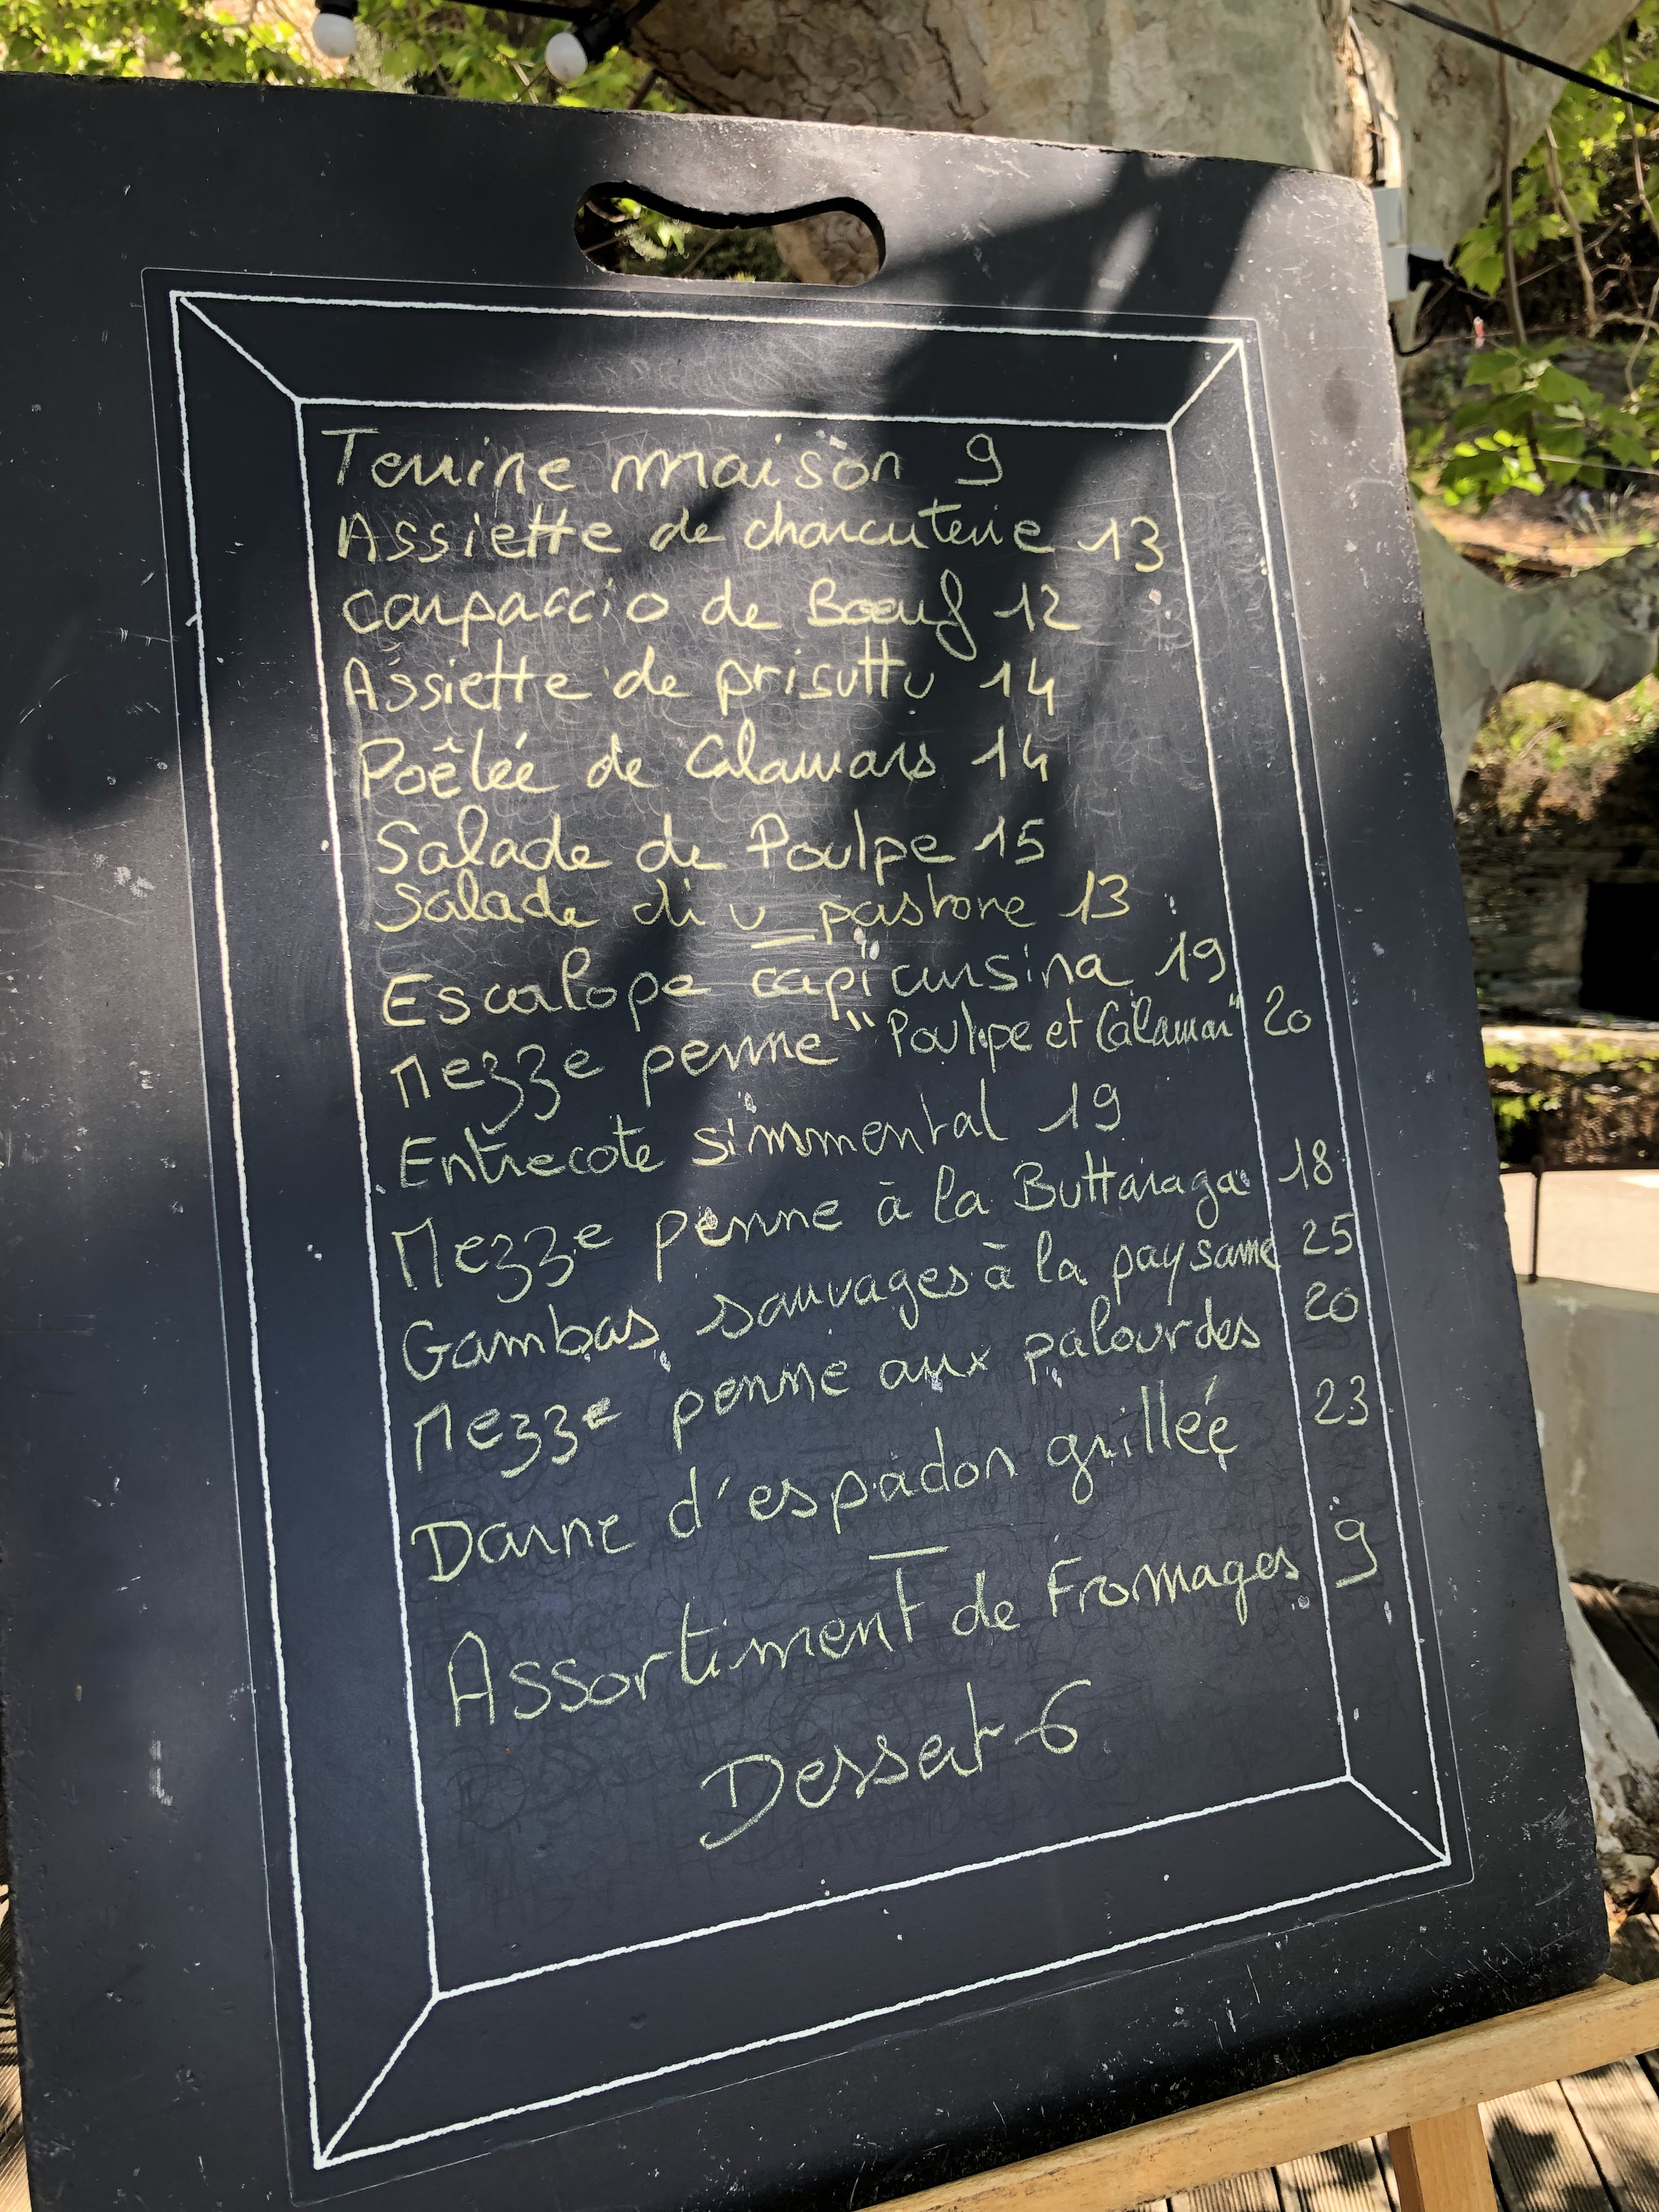 Terrine maison 9
Assiette de charcuterie 13
Carpaccio de Boeuf 12
Assiette de prisuttu 14
Poêlée de Calamars 14
Salade de Poulpe 15
Salade di u pastore 13
Escalope capicursina 19
Mezze penne "Poulpe et Calamar" 20
Entrecote simmental 19
Mezze penne à la Buttaraga 18
Gambas sauvages à la paysanne 25
Mezze penne aux palourdes 20
Darne d'espadon grillée 23
Assortiment de Fromages 9
Dessert 6